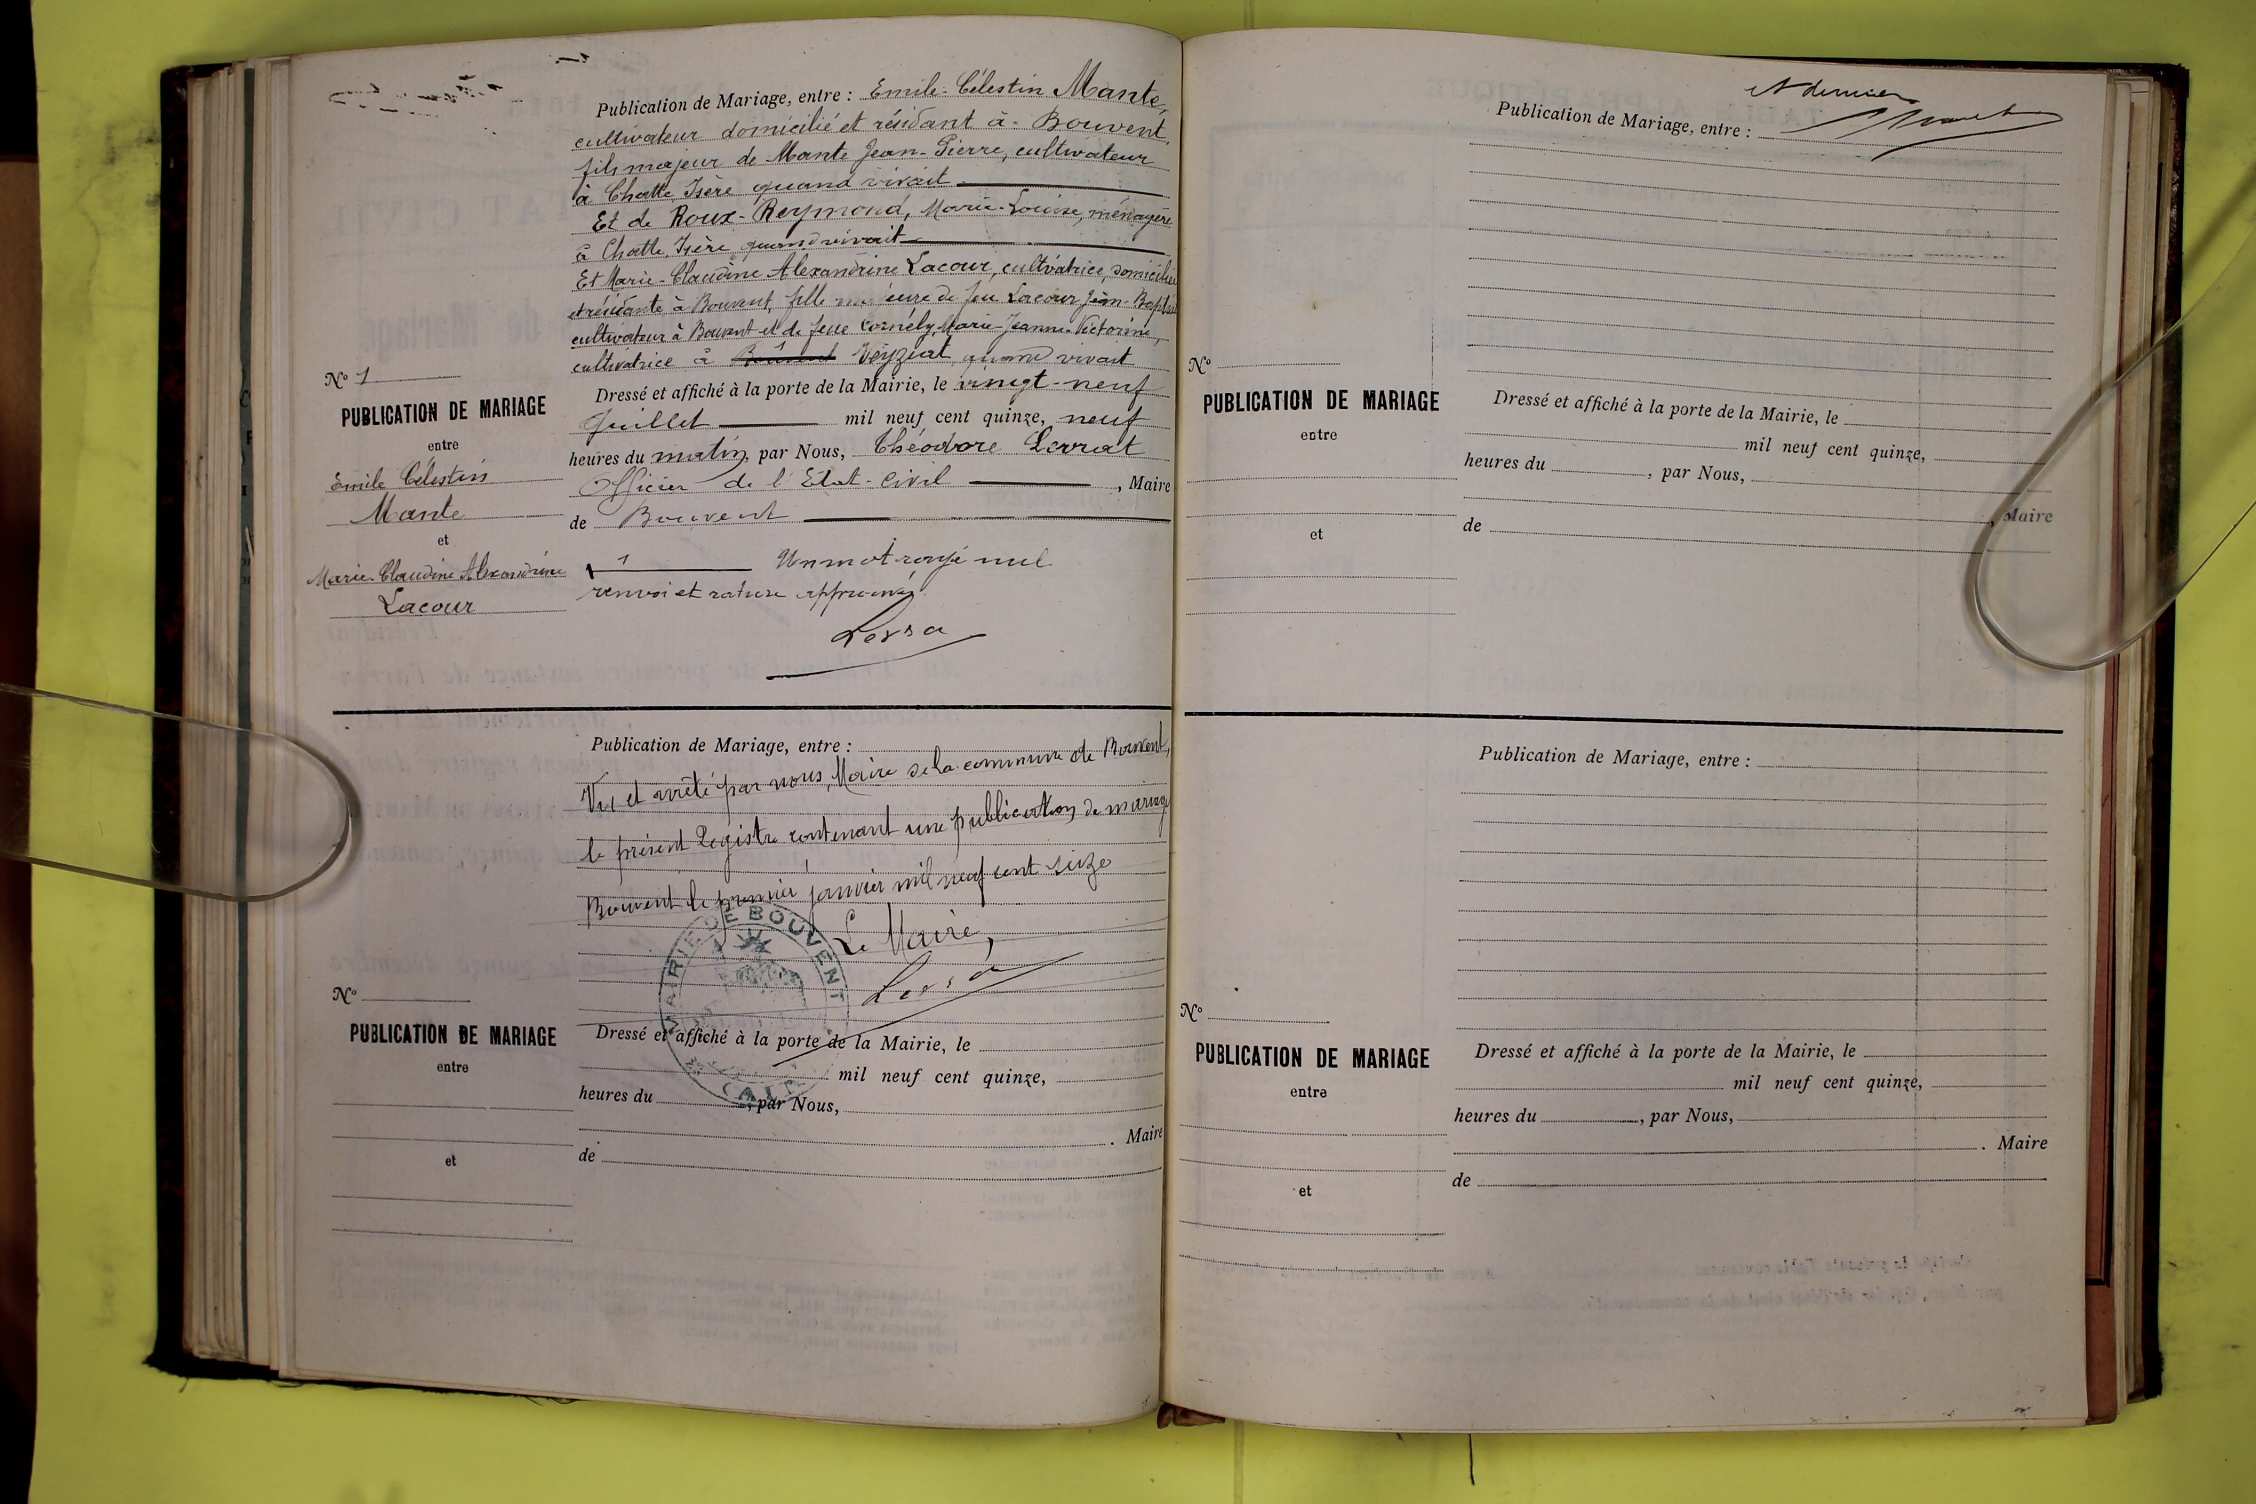 Publication de Mariage, entre : Emile-Célestin Mante,
cultivateur domicilié et résidant à Bouvent,
fils majeur de Mante Jean-Pierre, cultivateur
à Chatte, Isère quand vivait
Et de Roux-Reymond, Marie-Louise, ménagère
à Chatte, Isère, quand vivait
Et Marie-Claudine Alexandrine Lacour, cultivatrice, domiciliée
et résidante à Bouvent, fille majeure de feu Lacour Jean-Baptiste
cultivateur à Bouvent et de feue Cornély, Marie-Jeanne-Victorine,
cultivatrice à Bouvent Veyziat quand vivait
Dressé et affiché à la porte de la Mairie, le vingt-neuf
Juillet mil neuf cent quinze, neuf
heures du matin, par Nous, Théodore Levrat
Officier de l'Etat-civil , Maire
de Bouvent
1 Un mot rayé nul
renvoi et rature approuvés
N° 1
PUBLICATION DE MARIAGE
entre
Emile Célestin
Mante
et
Marie-Claudine Alexandrine
Lacour
Publication de Mariage, entre :
Vu et arrêté par nous, Maire de la commune de Bouvent,
le présent Registre contenant une publication de mariage
Bouvent le premier janvier mil neuf cent seize
Le Maire,
MAIRIE DE BOUVENT
(AIN)
Dressé et affiché à la porte de la Mairie, le
mil neuf cent quinze,
heures du , par Nous,
. Maire
de
N°
PUBLICATION DE MARIAGE
entre
et
et dernier
Publication de Mariage, entre :
Dressé et affiché à la porte de la Mairie, le
mil neuf cent quinze,
heures du , par Nous,
, Maire
de
N°
PUBLICATION DE MARIAGE
entre
et
Publication de Mariage, entre :
Dressé et affiché à la porte de la Mairie, le
mil neuf cent quinze,
heures du , par Nous,
. Maire
de
N°
PUBLICATION DE MARIAGE
entre
et